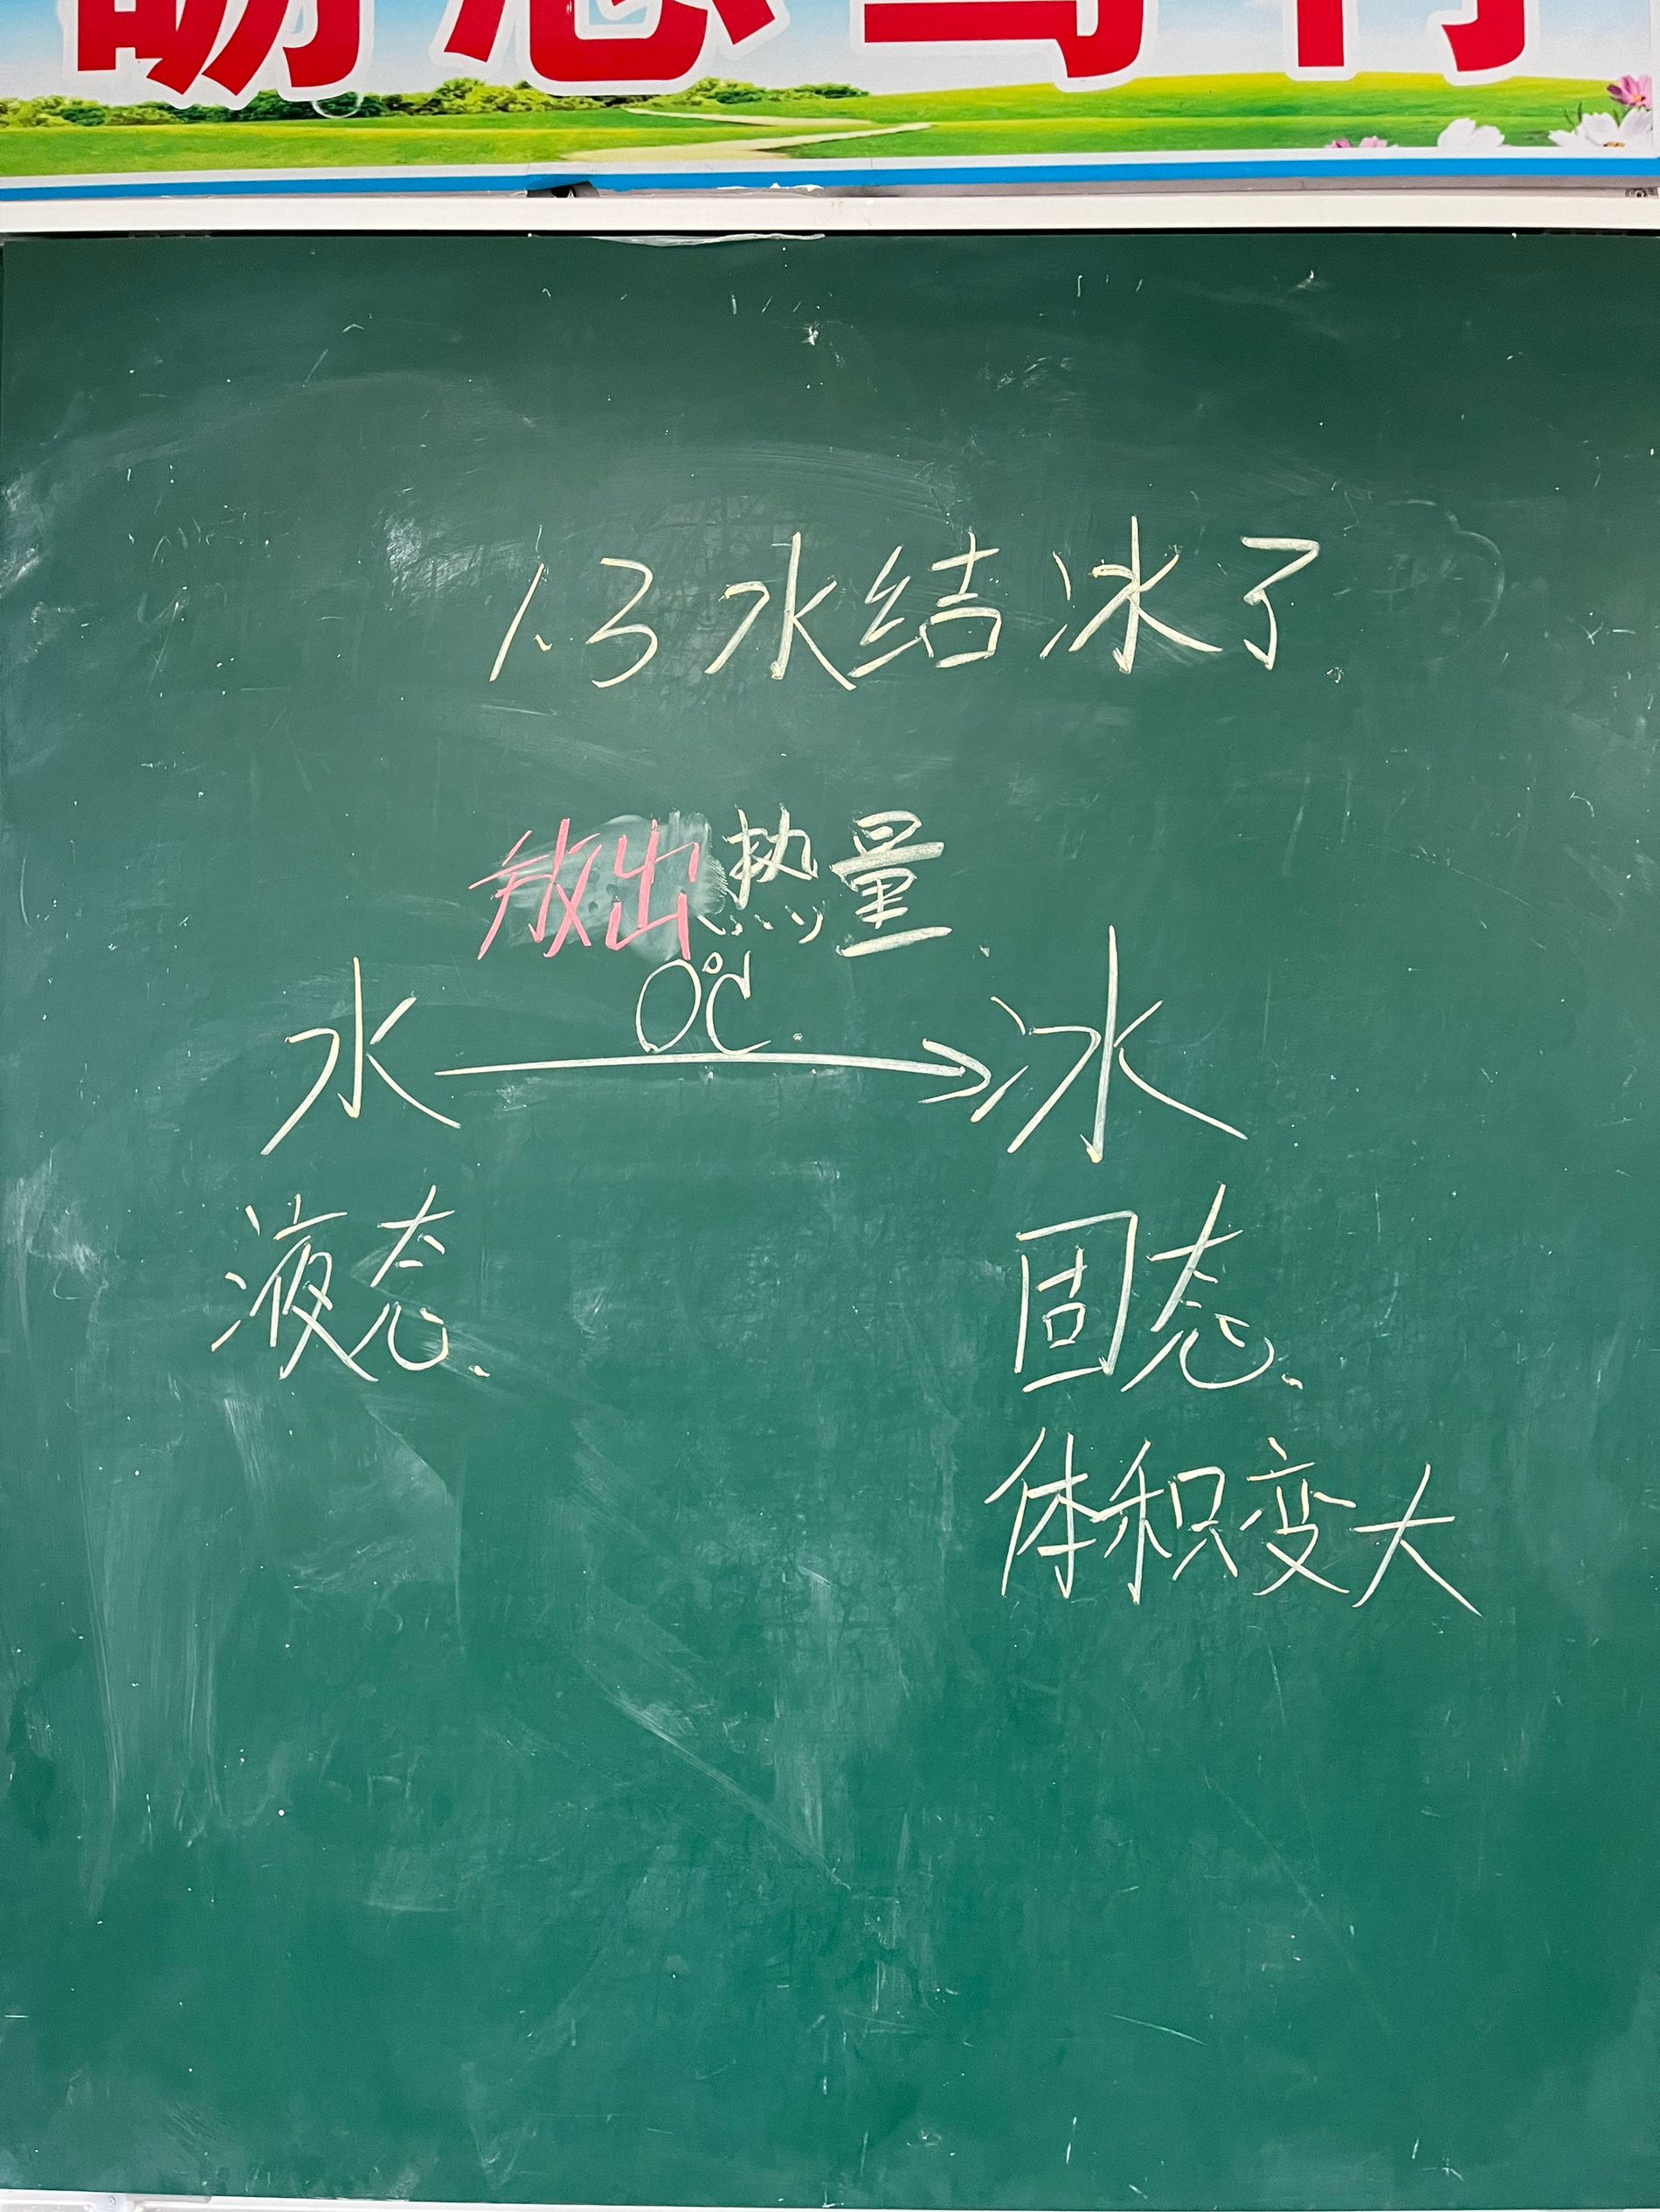 励志笃行
1.3 水结冰了
放出热量
水 0℃ 冰
液态 固态
体积变大